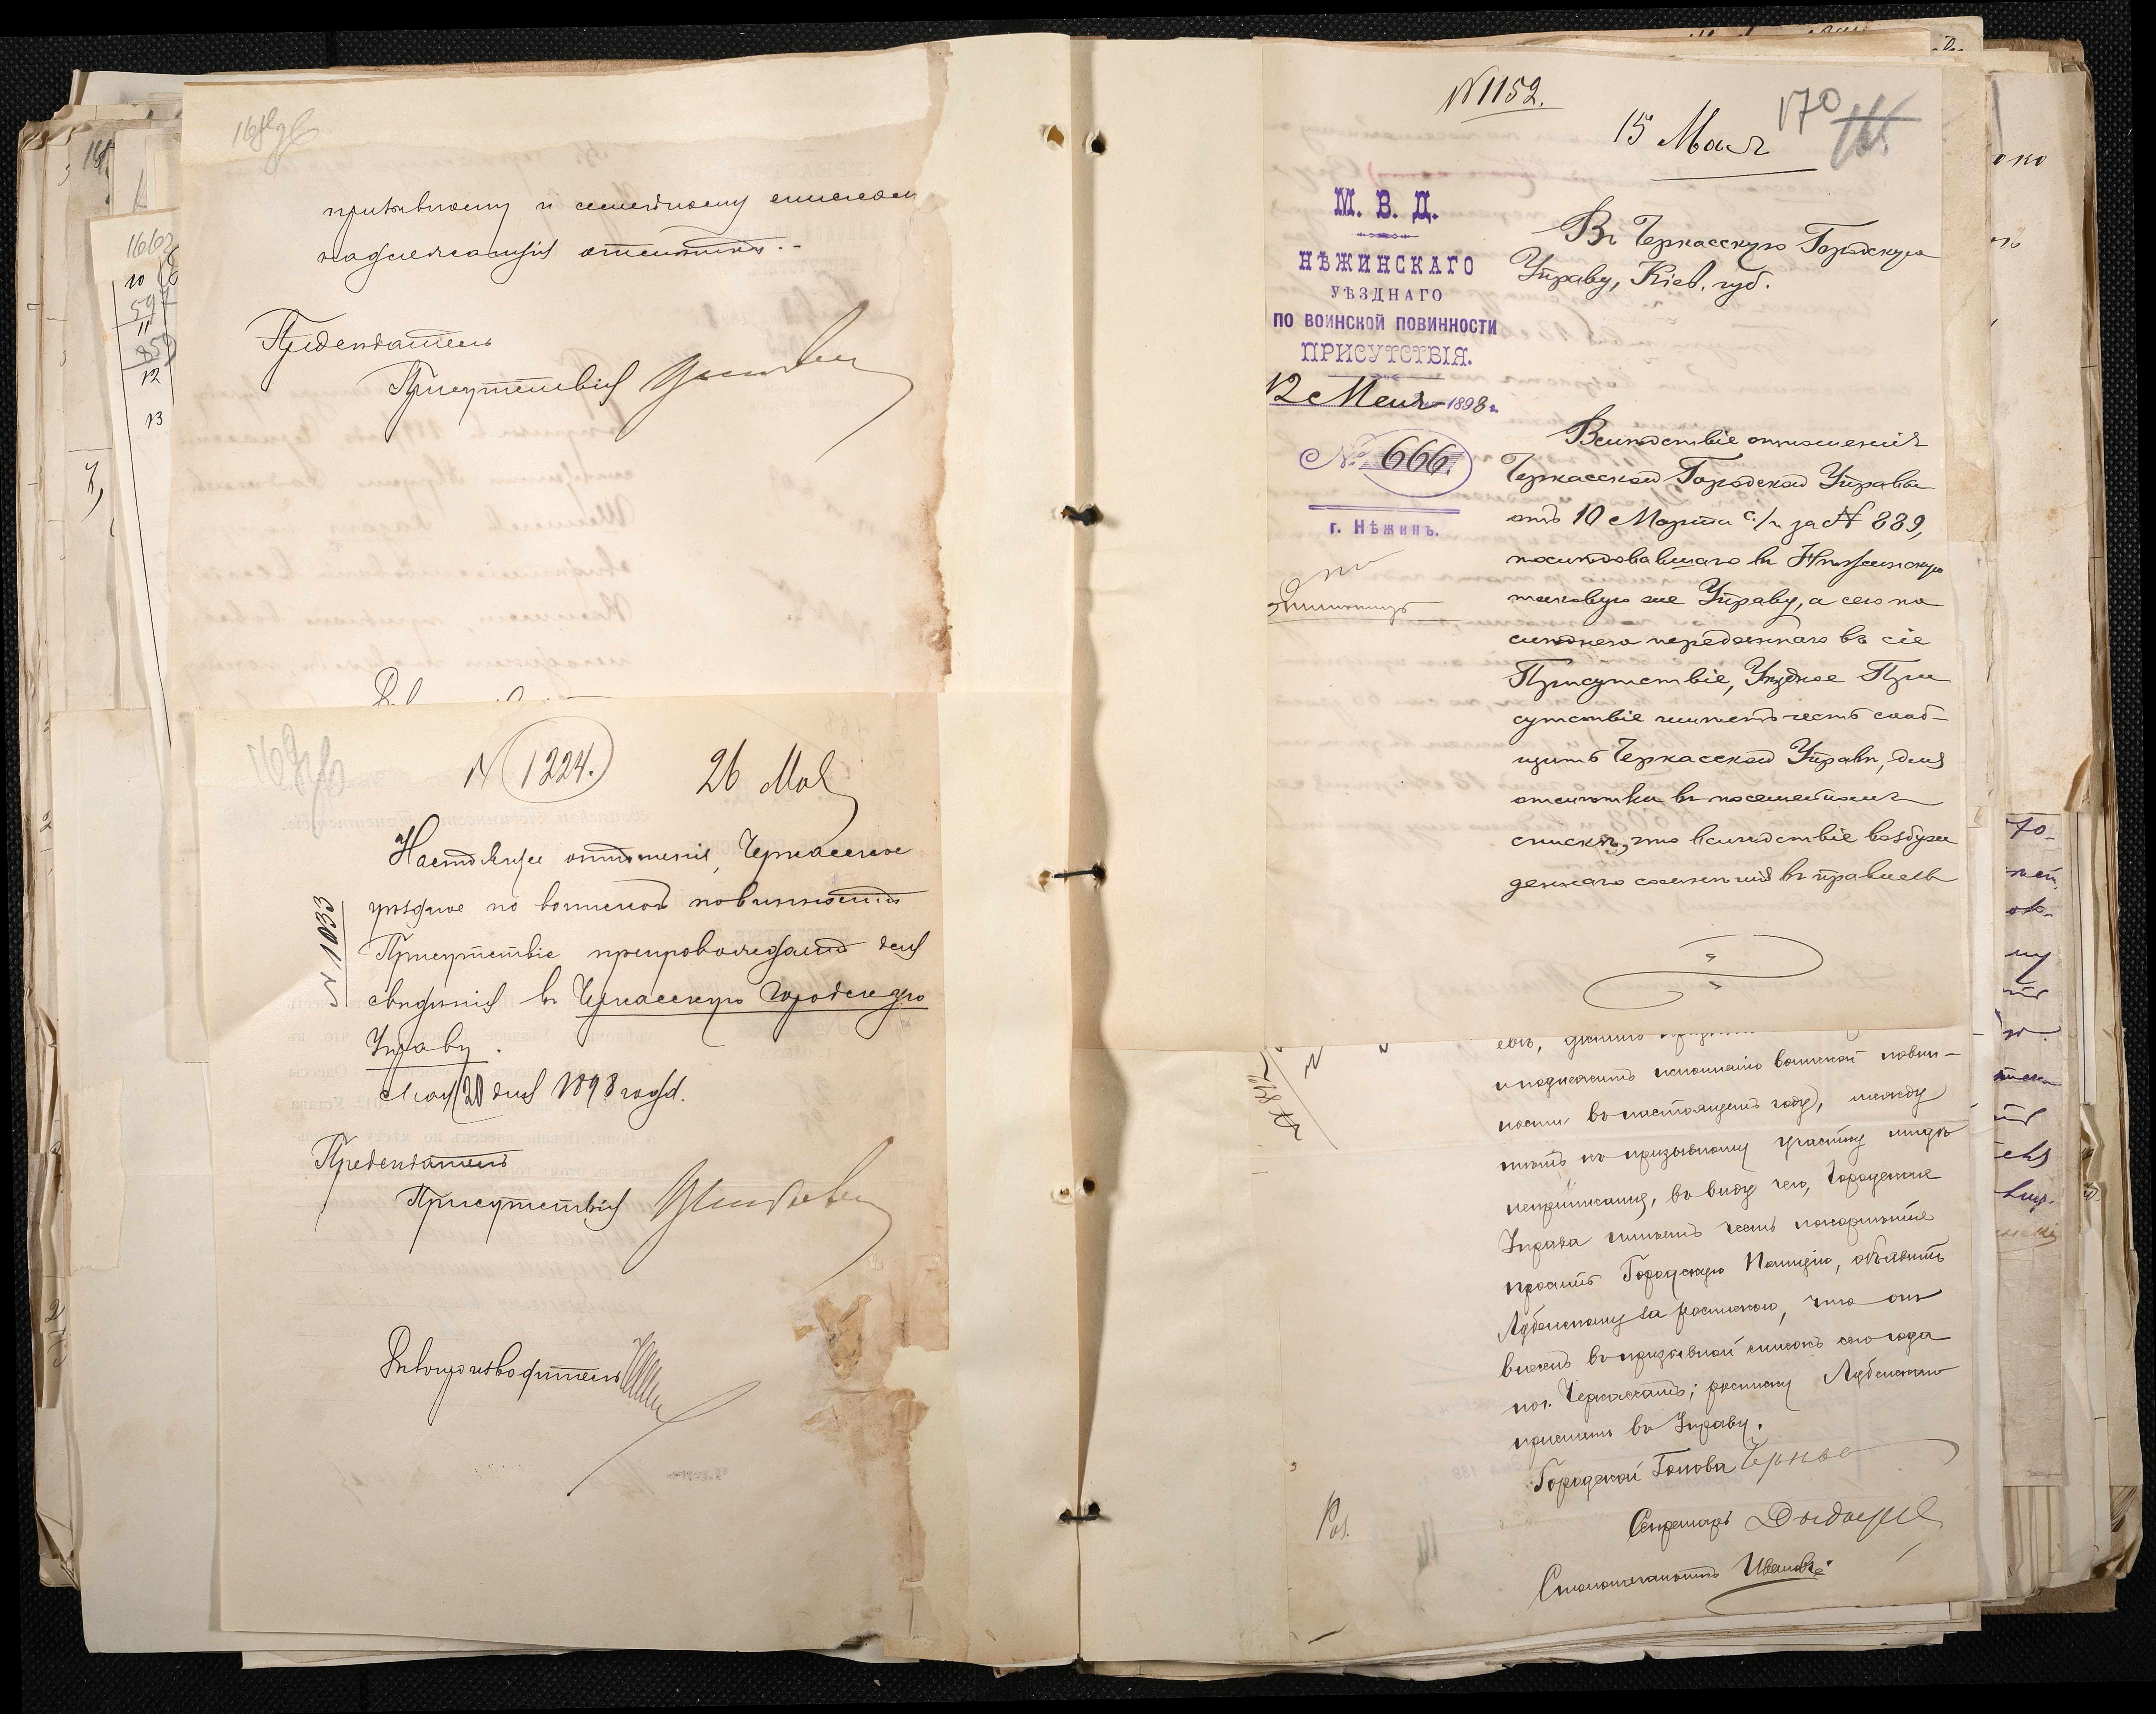 призывному и семейному спискам
надлежащія отмѣтки.
Предсѣдатель
Присутствія
N 1224.
26 Мая
N 1033
Настоящее отношеніе, Черкасское
уѣздное по воинской повинности
Присутствіе препровождаетъ для
свѣдѣнія въ Черкасскую Городскую
Управу.
Мая 20 дня 1898 года.
Предсѣдатель
Присутствія
Дѣлопроизводитель
N 1152.
15 Мая
170
М. В. Д.
НѢЖИНСКАГО
УѢЗДНАГО
ПО ВОИНСКОЙ ПОВИННОСТИ
ПРИСУТСТВІЯ.
12 Мая 1898 г.
№ 666.
г. Нѣжинъ.
Въ Черкасскую Городскую
Управу, Кіев. губ.
Вслѣдствіе отношенія
Черкасской Городской Управы
отъ 10 Марта с./г. за N 889,
послѣдовавшаго въ Нѣжинскую
таковую же Управу, а сею по
слѣднею переданнаго въ сіе
Присутствіе, Уѣздное При
сутствіе имѣетъ честь сооб-
щить Черкасской Управѣ, для
отмѣтки въ посемейномъ
спискѣ, что вслѣдствіе возбуж
деннаго сомнѣнія въ правиль
и подлежитъ исполненію воинской повин-
ности въ настоящемъ году, между
тѣмъ къ призывному участку нигдѣ
неприписанъ, въ виду чего, Городская
Управа имѣетъ честь покорнѣйше
просить Городскую Полицію, объявить
Лубенскому за роспискою, что онъ
внесенъ въ призывной списокъ сего года
по г. Черкассамъ; росписку Лубенскаго
прислать въ Управу.
Городской Голова
Секретарь
Столоначальникъ Ивановъ